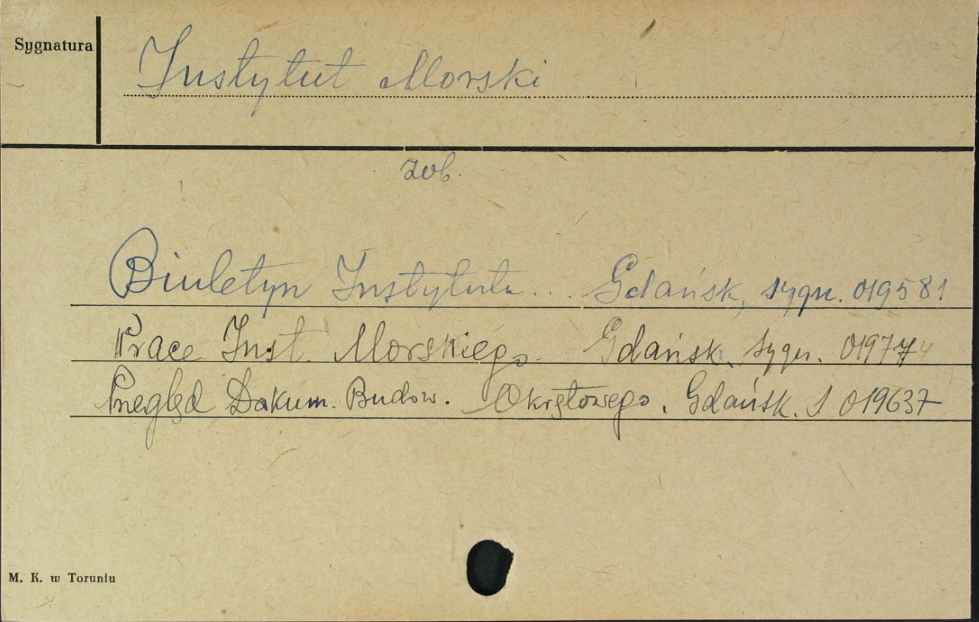 Sygnatura
Instytut Morski
zob.
Biuletyn Instytutu... Gdańsk, sygn. 019581
Prace Inst. Morskiego. Gdańsk, sygn. 01977
Przegląd Dokum. Budow. Okrętowego. Gdańsk. S 019637
M. K. w Toruniu